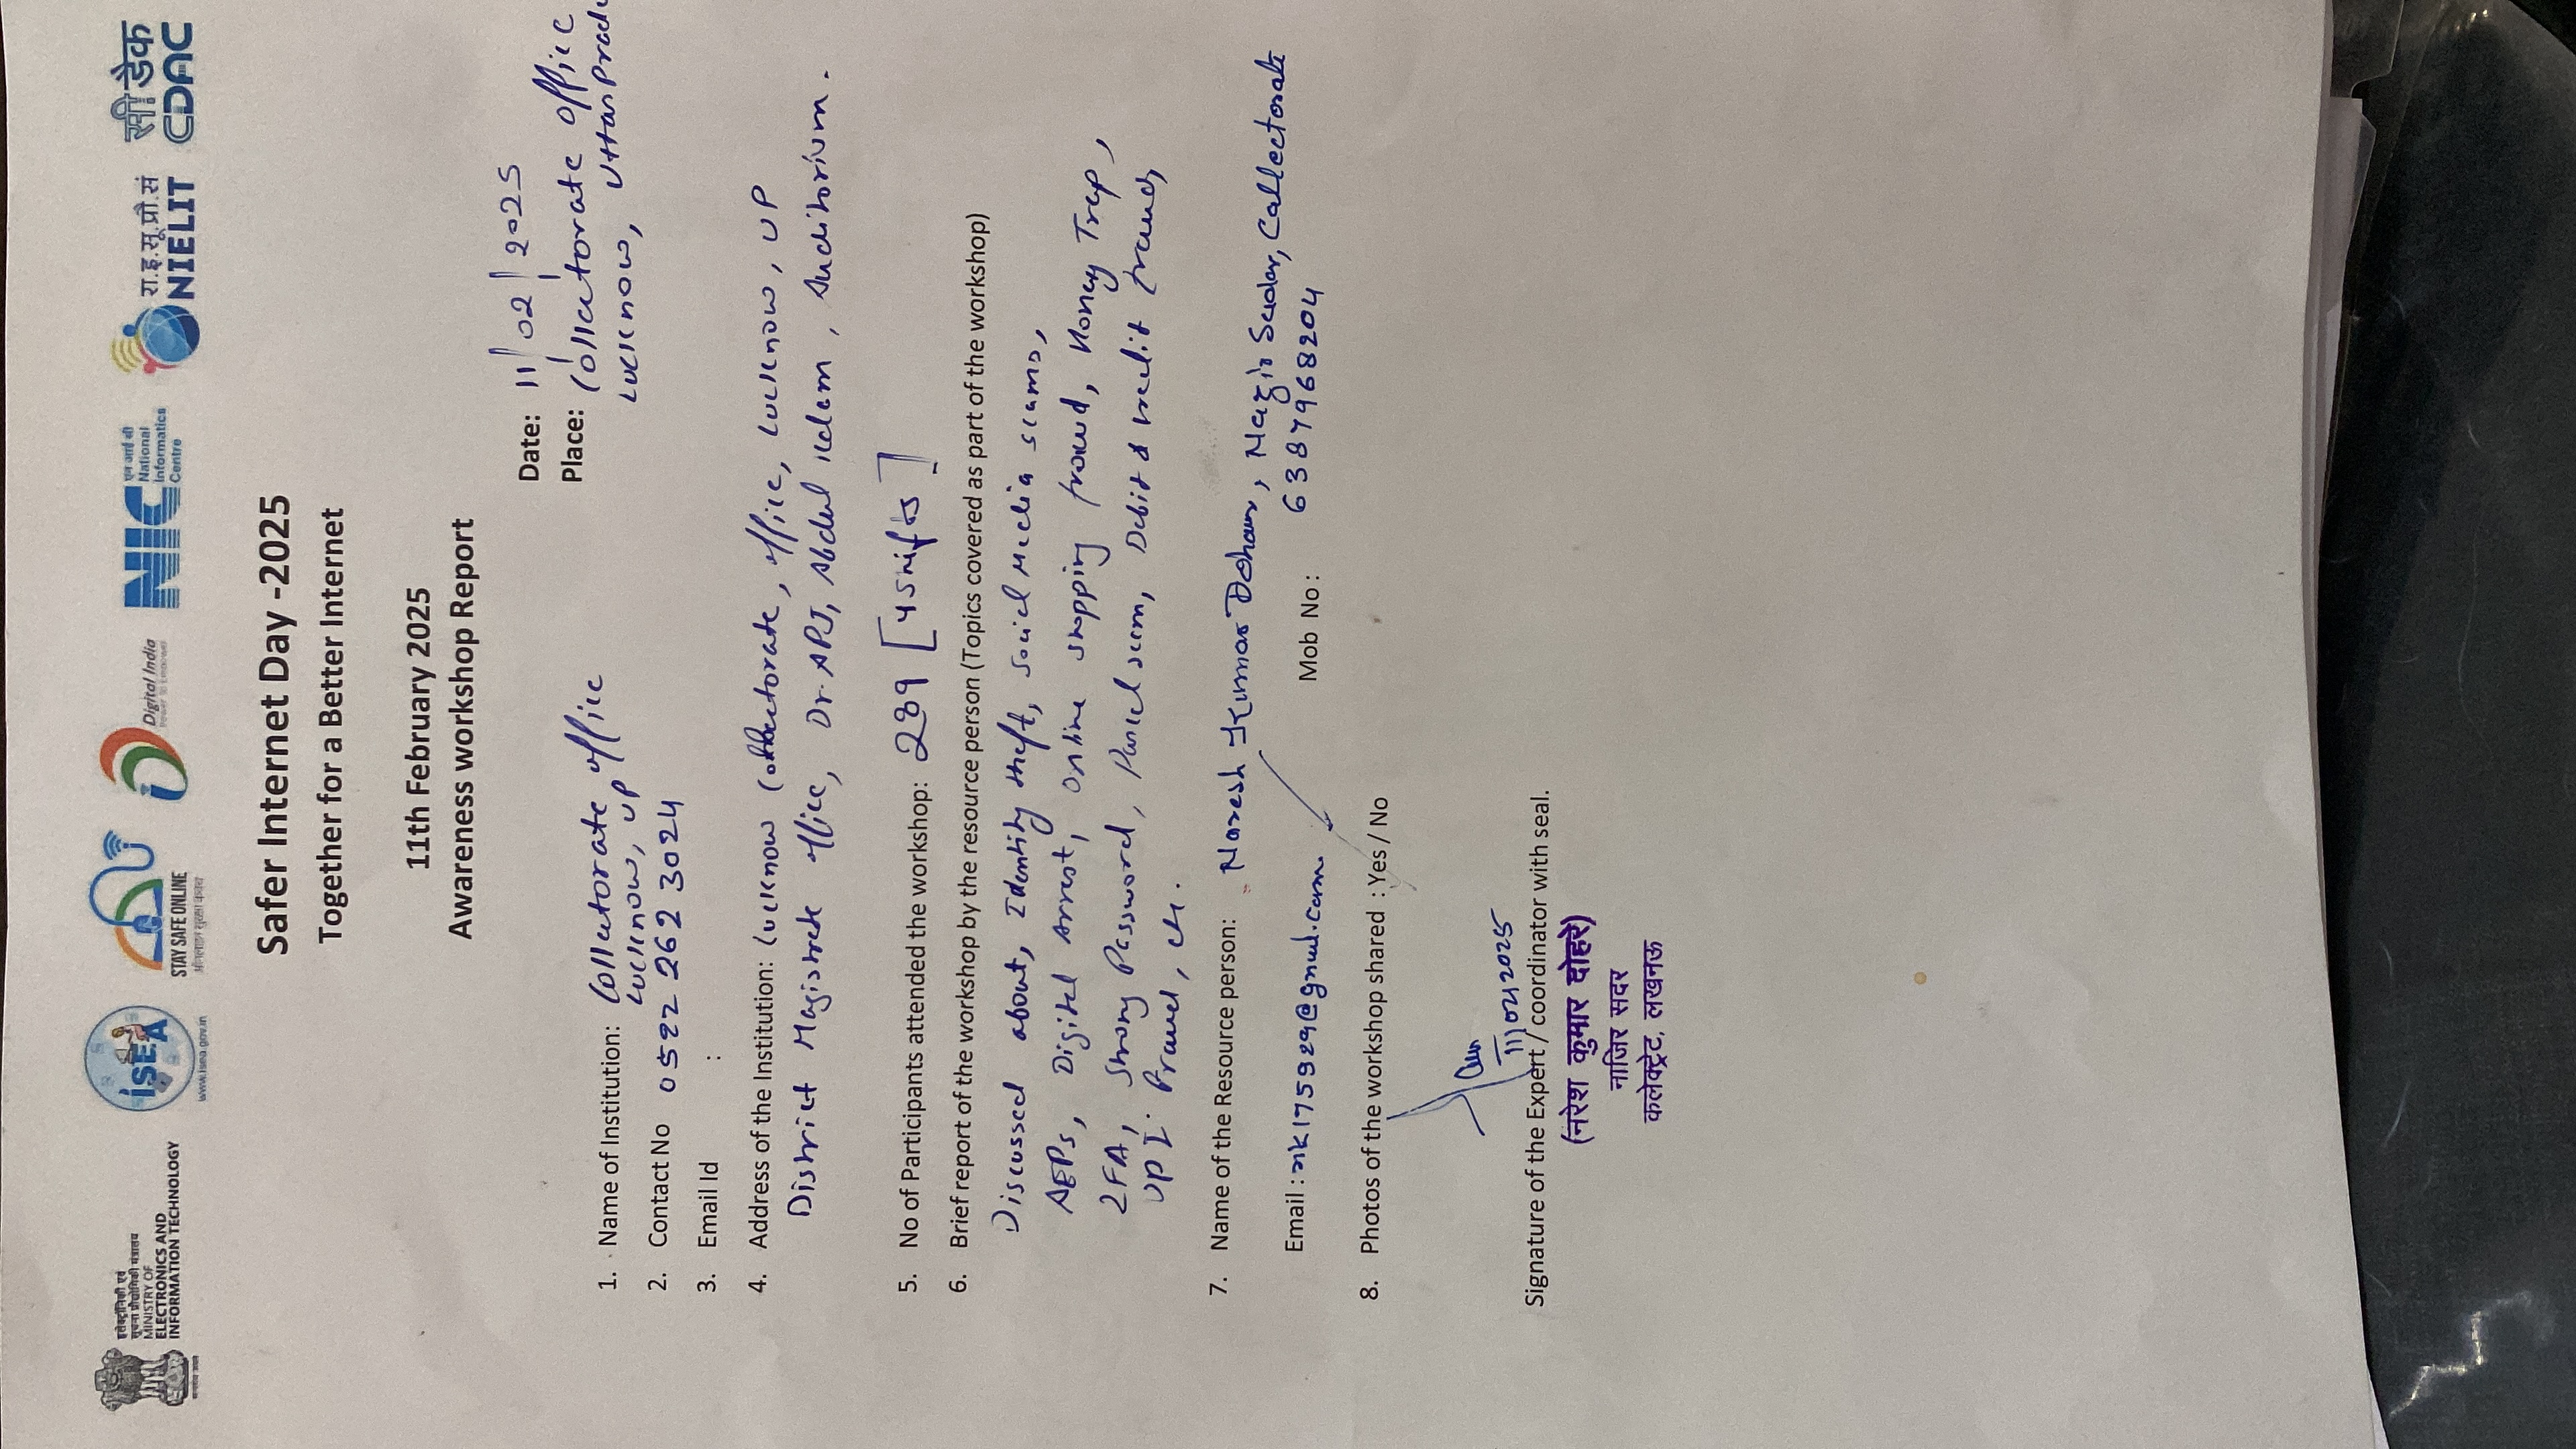 इलेक्ट्रॉनिकी एवं
सूचना प्रौद्योगिकी मंत्रालय
MINISTRY OF
ELECTRONICS AND
INFORMATION TECHNOLOGY
ISEA
www.isea.gov.in
STAY SAFE ONLINE
Digital India
NIC
एन आई सी
National
Informatics
Centre
रा.इ.सू.प्रौ.सं
NIELIT
सी डैक
CDAC
Safer Internet Day -2025
Together for a Better Internet
11th February 2025
Awareness workshop Report
Date: 11/02/2025
Place: Collectorate office
Lucknow, Uttar
1. Name of Institution: Collectorate office
Lucknow, UP
2. Contact No 0522 262 3024
3. Email Id :
4. Address of the Institution: Lucknow Collectorate, office, Lucknow, UP
District Magistrate office, Dr. APJ, Abdul Kalam, Auditorium.
5. No of Participants attended the workshop: 289
6. Brief report of the workshop by the resource person (Topics covered as part of the workshop)
Discussed about, Identity theft, Social Media scams,
AEPs, Digital Arrest, Online shopping fraud, Honey Trap,
2FA, Strong Password, Parcel scam, Debit & credit fraud,
UPI. Fraud,
7. Name of the Resource person: Naresh Kumar Dohare, Nazir Sadar, Collectorate
Email : Mob No: 6387968204
8. Photos of the workshop shared : Yes / No
11/02/2025
Signature of the Expert / coordinator with seal.
(नरेश कुमार दोहरे)
नाजिर सदर
कलेक्ट्रेट, लखनऊ